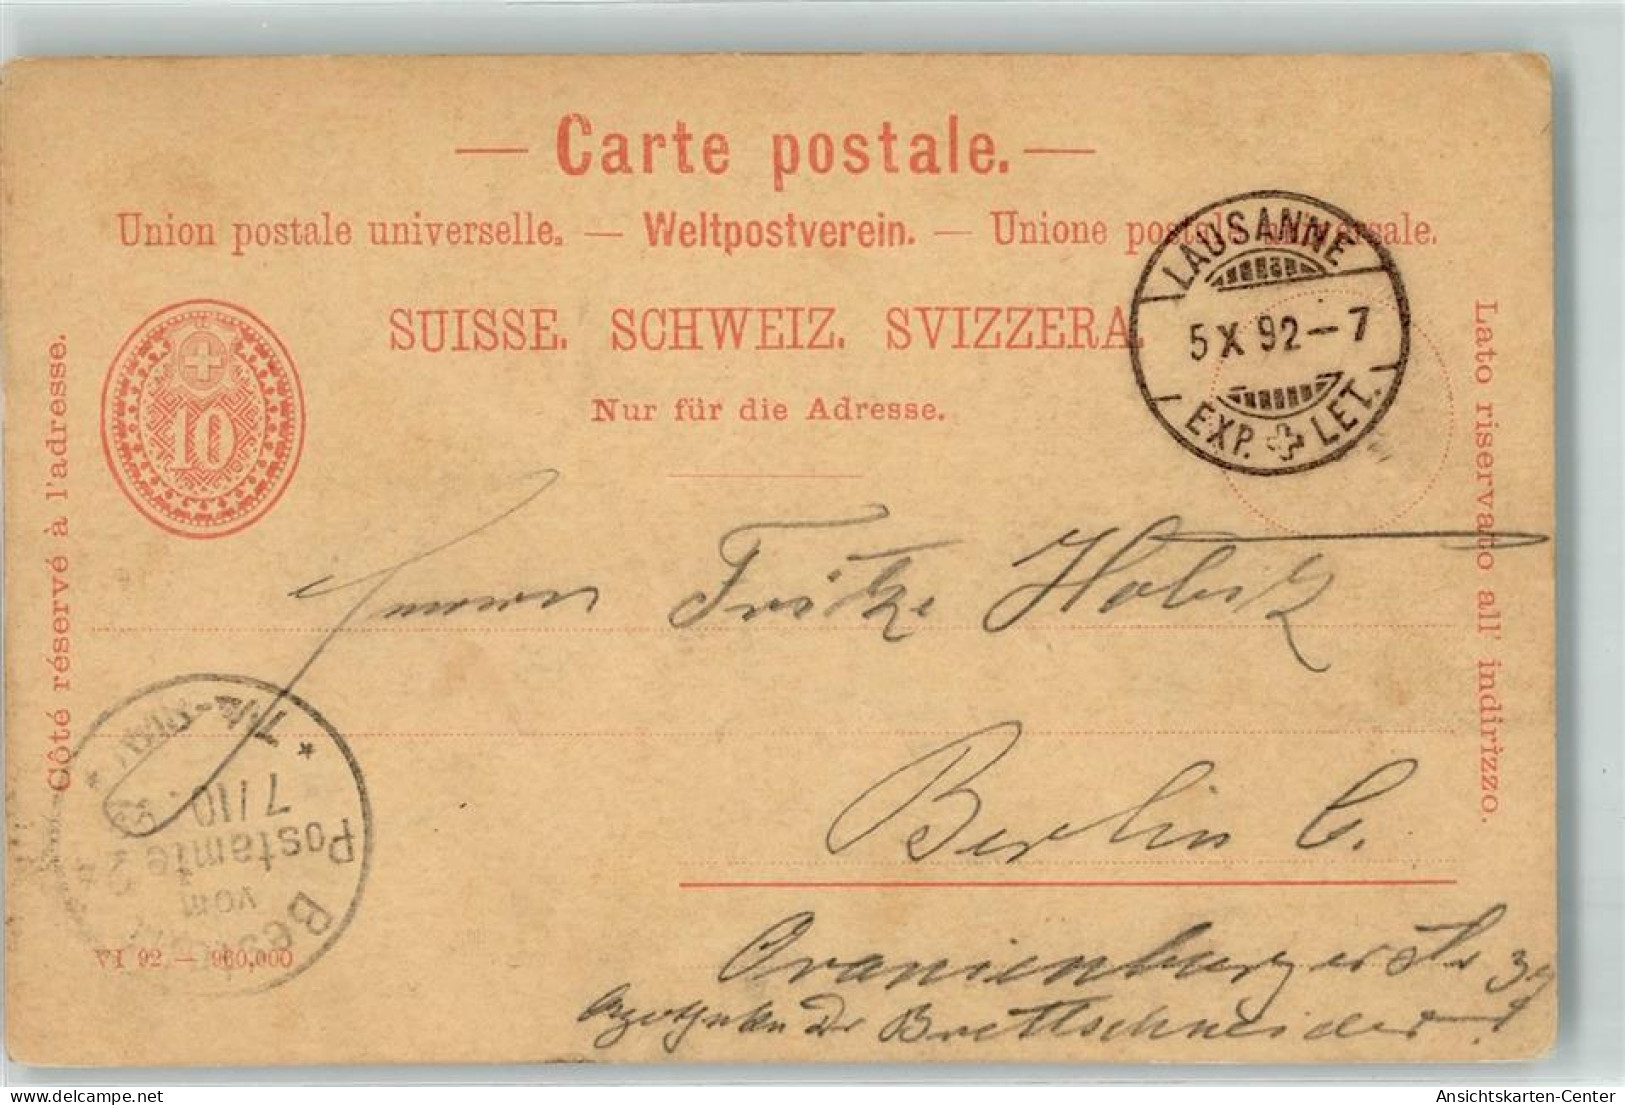 — Carte postale. —
Union postale universelle. — Weltpostverein. — Unione postale universale.
SUISSE. SCHWEIZ. SVIZZERA.
Nur für die Adresse.
10
Côté réservé à l'adresse.
Lato riservato all' indirizzo.
LAUSANNE
5 X 92 – 7
EXP. LET.
Herrn Fritze
Berlin C.
Oranienburgerstr 39
Apotheke Dr Brettschneider
Best
vom
Postamte
7/10
VI 92 — 960,000
Ansichtskarten-Center